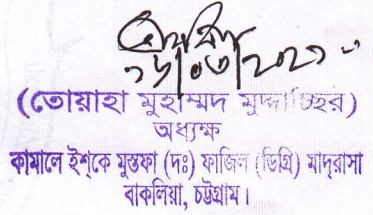 (তোয়াহা মুহাম্মদ মুদ্দাচ্ছির)
অধ্যক্ষ
কামালে ইশ্‌কে মুস্তফা (দঃ) ফাজিল (ডিগ্রি) মাদ্‌রাসা
বাকলিয়া, চট্টগ্রাম।